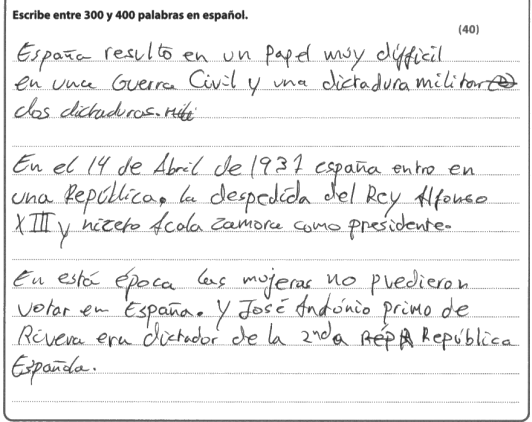 Escribe entre 300 y 400 palabras en español.
(40)
España resulto en un papel muy dífficil
en una Guerra Civil y una dictadura militar
dos dictaduras.
En el 14 de Abril de 1931 españa entro en
una República, la despedida del Rey Alfonso
XIII y niceto Acala zamora como presidente.
En está época las mujeras no puedieron
votar en España. Y José António primo de
Rivera era dictador de la 2nda República
Españda.